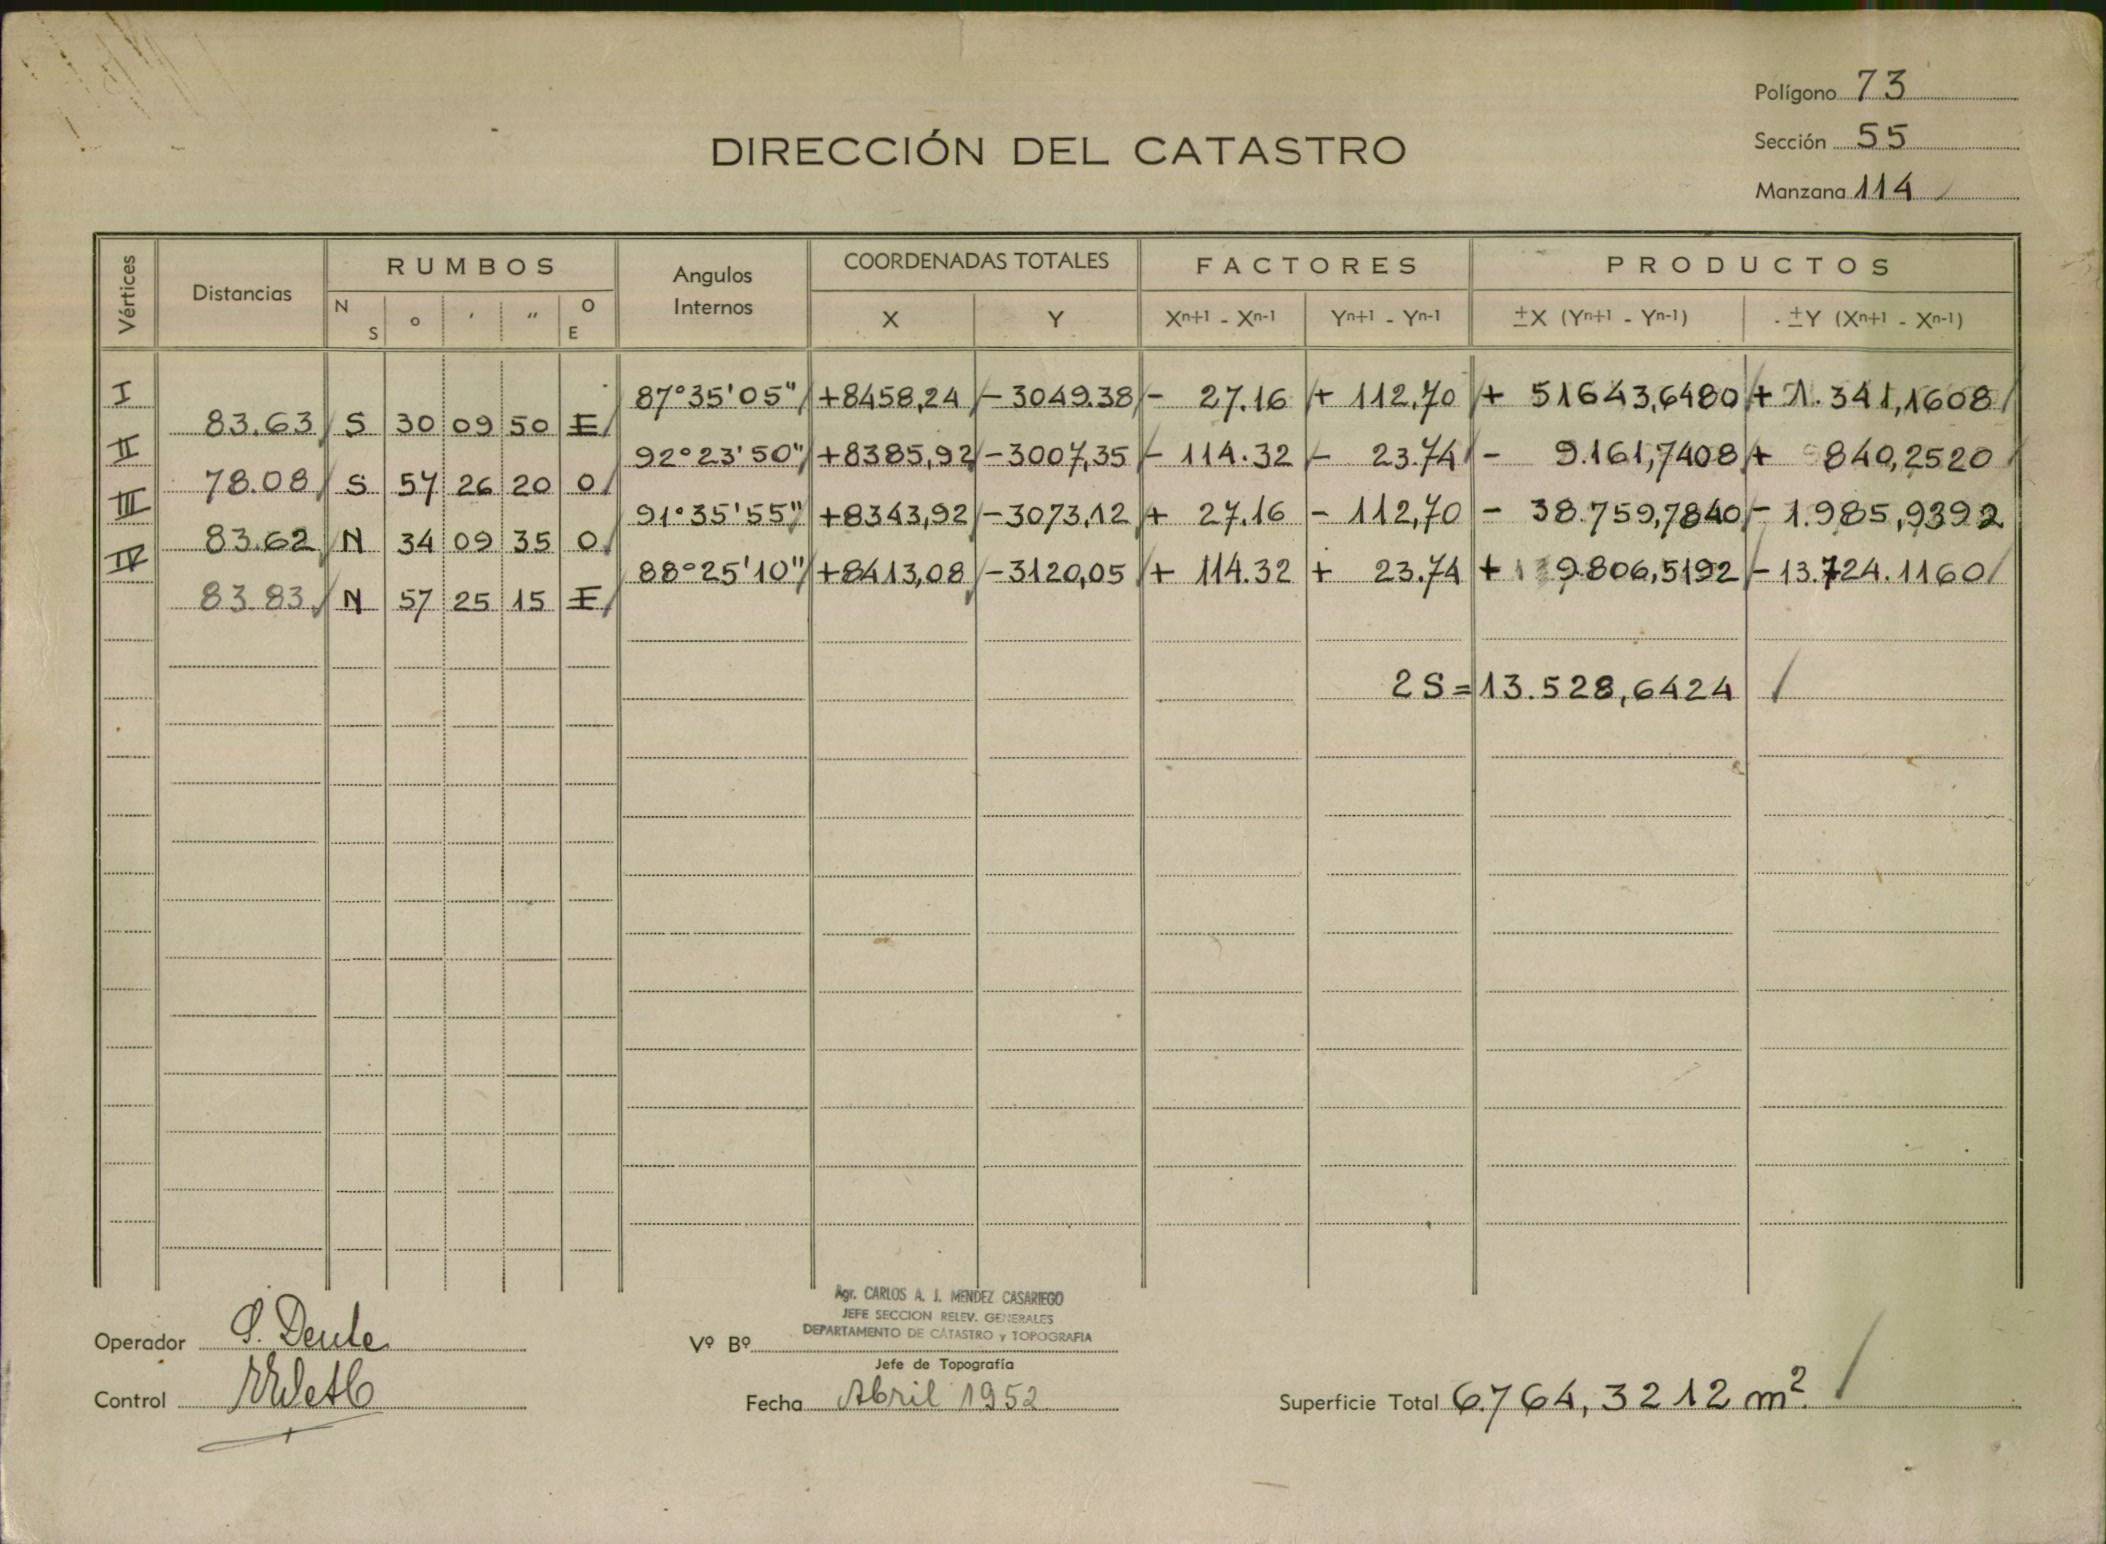 Polígono 73
DIRECCIÓN DEL CATASTRO
Sección 55
Manzana 114
Vértices Distancias RUMBOS N S ° ' " O E Angulos Internos COORDENADAS TOTALES X Y FACTORES Xn+1 - Xn-1 Yn+1 - Yn-1 PRODUCTOS ±X (Yn+1 - Yn-1) - ±Y (Xn+1 - Xn-1)
I 87°35'05" +8458,24 -3049.38 - 27.16 + 112,70 + 51643,6480 + 1.341,1608
83.63 S 30 09 50 E
II 92°23'50" +8385,92 -3007,35 - 114.32 - 23.74 - 9.161,7408 + 840,2520
78.08 S 57 26 20 O
III 91°35'55" +8343,92 -3073,12 + 27.16 - 112,70 - 38.759,7840 - 1.985,9392
83.62 N 34 09 35 O
IV 88°25'10" +8413,08 -3120,05 + 114.32 + 23.74 + 9.806,5192 - 13.724.1160
83.83 N 57 25 15 E
2S = 13.528,6424
Agr. CARLOS A. J. MENDEZ CASARIEGO
JEFE SECCION RELEV. GENERALES
DEPARTAMENTO DE CATASTRO y TOPOGRAFIA
Operador
Vº Bº
Jefe de Topografía
Control
Fecha Abril 1952
Superficie Total 6.764,3212 m².